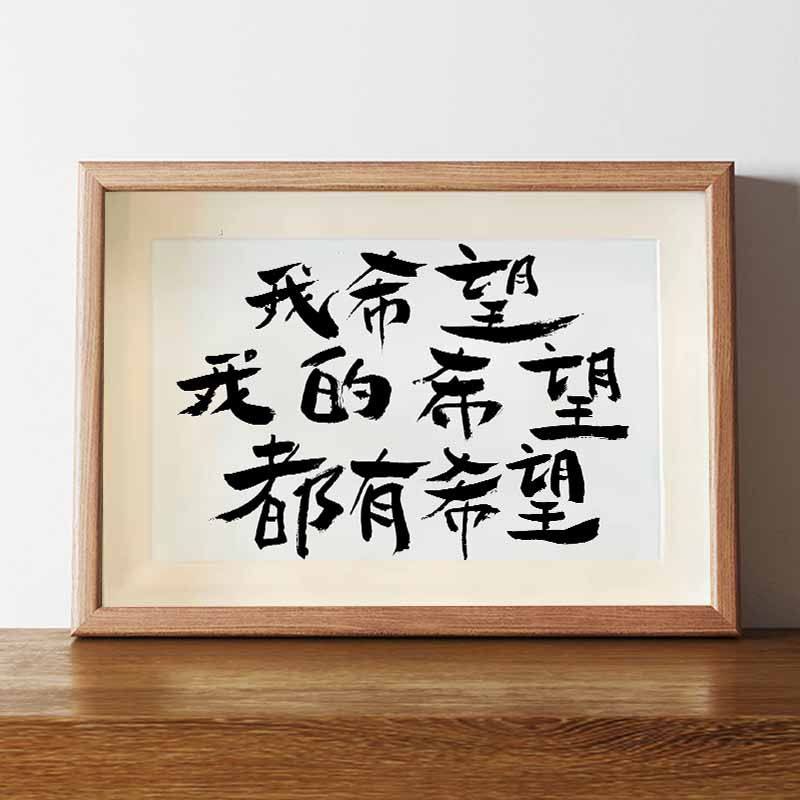 我希望
我的希望
都有希望